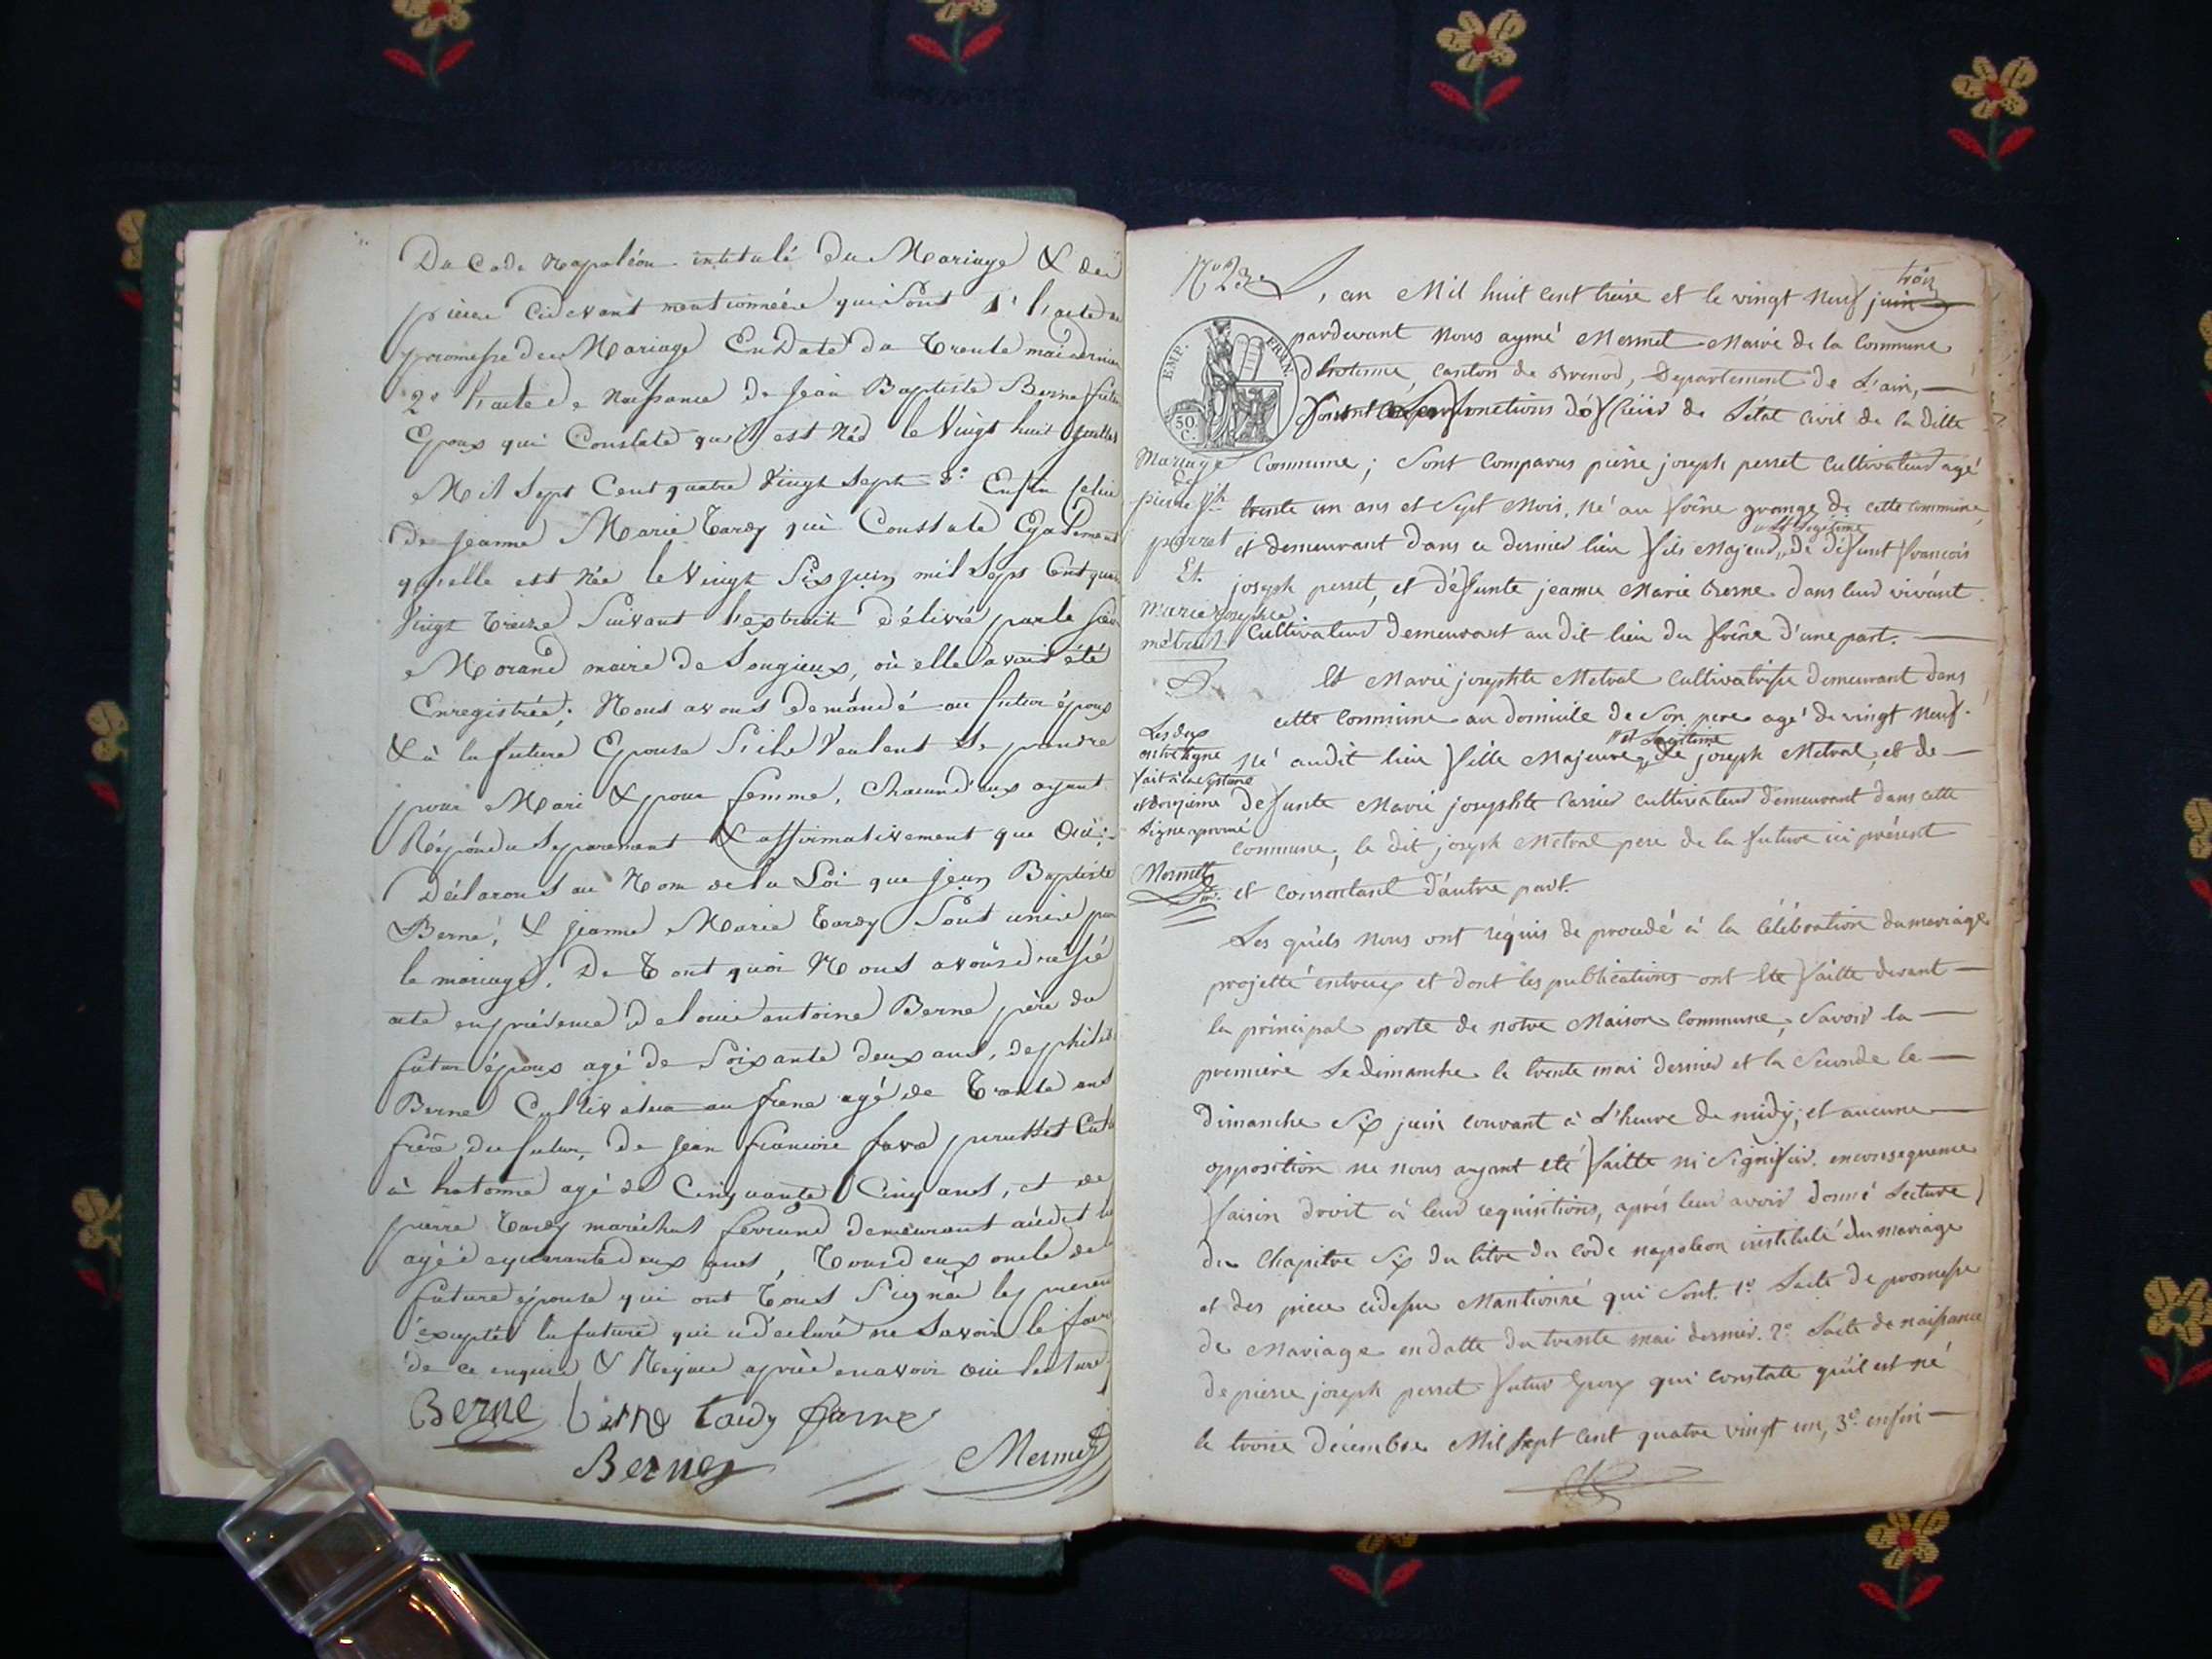 Du Code Napoléon intitulé du Mariage & des
pièces cidevant mentionnées qui sont 1° l'acte de
promesse de Mariage En Date du trente mai dernier
2° l'acte de Naissance de Jean Baptiste Berne futur
Epoux qui Constate qu'il est Né le Vingt huit juillet
Mil Sept Cent quatre Vingt Sept 3° Enfin celui
de Jeanne Marie Tardy qui Constate Egalement
qu'elle est Née le Vingt Six juin mil Sept Cent quatre
Vingt treize Suivant l'extrait délivré par le Sieur
Morand maire de Songieux, où elle avait été
Enregistrée; Nous avons demandé au futur époux
& à la future Epouse S'ils Veulent Se prendre
pour Mari & pour femme, Chacun d'eux ayant
Répondu Séparement & affirmativement que Oui;
Déclarons au Nom de la Loi que Jean Baptiste
Berne, & Jeanne Marie Tardy Sont unis par
le mariage. De Tout quoi Nous avons dressé
acte en présence de louis antoine Berne père du
futur époux agé de Soixante deux ans, de philib
Berne Cultivateur au frene agé de Trente ans
frère du futur, de Jean francois favre Cult
à hotonne agé de Cinquante Cinq ans, et de
pierre Tardy maréchal ferrand demeurant audit lieu
agé de quarante deux ans, Tous deux oncle de la
future épouse qui ont Tous Signée les présents
éxcepté la future qui a déclaré ne Savoir le faire
de ce enquise & Requise après en avoir oui lecture
Berne berne tardy favre
Berne Mermet
trois
N° 23e L'an Mil huit cent treise et le vingt Neuf juin
EMP. FRAN.
50. C.
pardevant Nous aymé Mermet Maire de la Commune
d'hotonne, canton de Brenod, Departement de L'ain,
fonctions d'officier de L'état civil de la ditte
Commune; Sont comparus pierre joseph perret cultivateur agé
trente un ans et Sept Mois, Né au frêne grange de cette commune
et Légitime
et demeurant dans ce dernier lieu fils Majeur de défunt françois
joseph perret, et défunte jeanne Marie Berne dans leur vivant
Cultivateur demeurant au dit lieu du frêne d'une part.
Mariage
de
pierre jph
perret
Et
marie josephte
métral
Et Marie josephte Metral cultivatrice demeurant dans
cette commune au domicile de Son pere agé de vingt Neuf
et Legitime
Né audit lieu fille Majeure de joseph Metral, et de
defunte Marie josephte Carrier cultivateur demeurant dans cette
commune, le dit joseph Metral pere de la future ici présent
et consentant d'autre part.
Les deux
entreligne
fait à la Septieme
et onzieme
Ligne aprouvé
Mermet
Les quels nous ont requis de procedé à la Célébration du mariage
projetté entreux et dont les publications ont été faitte devant
la principal porte de notre Maison Commune, Savoir la
première Le dimanche le trente mai dernier et la Seconde le
dimanche Six juin courant à L'heure de midy; et aucune
opposition ne nous ayant été faitte ni Signifier. enconsequence
faisin droit à leur requisitions, après leur avoir donné Lecture
du Chapitre Six du titre du code napoleon intitulé du mariage
et des piece cidessu Mantionné qui Sont. 1° Lacte de promesse
de Mariage endatte du trente mai dernier. 2° Lacte de naissance
de pierre joseph perret futur Epoux qui constate qu'il est né
le troise décembre Mil Sept Cent quatre vingt un, 3° enfin